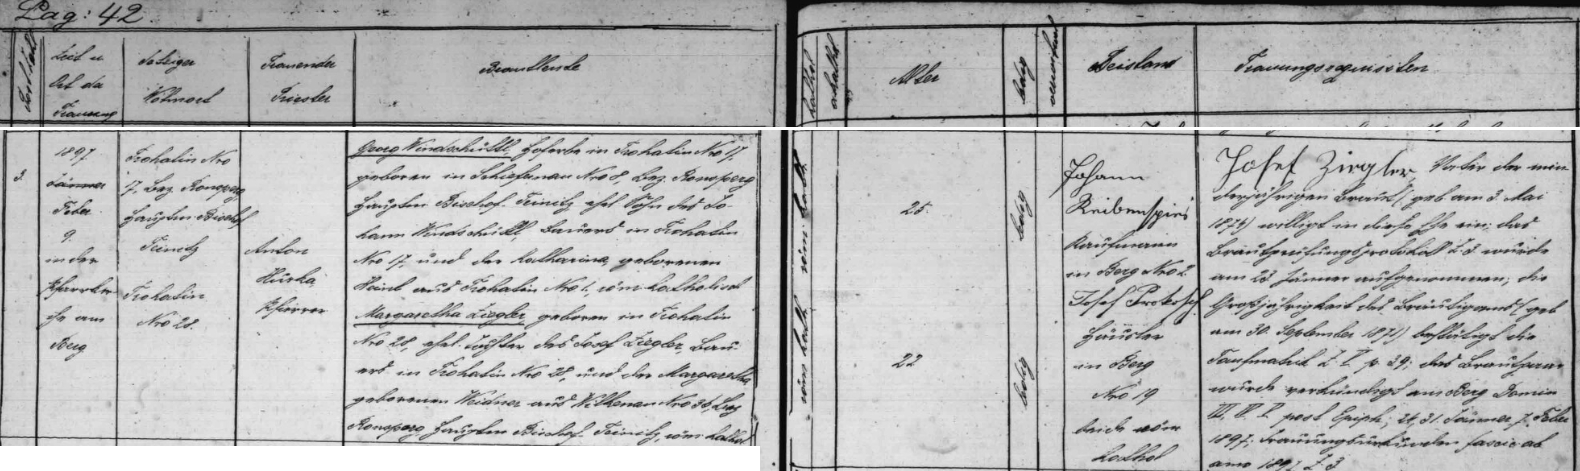 Pag: 42
Zeit u Ort der Trauung
jetziger Wohnort
Trauender Priester
Brautleute
kathol
akathol
Alter
ledig
verwitwet
Beistand
Trauungsrequisiten
3.
1897
Jänner
Feber
9.
in der
Pfarrkir
che am
Berg
Trohatin Nro
17, Bez Ronsperg
Hauptm Bischof
Teinitz
Trohatin
Nro 28.
Anton
Hürka,
Pfarrer
Georg Windschüttl, in Trohatin Nro 17,
geboren in Schiefernau Nro 8, Bez. Ronsperg
Hauptm Bischof Teinitz, ehel. Sohn des Jo-
hann Windschüttl, Bauers in Trohatin
Nro 17, und der Katharina, geborenen
aus Trohatin Nro 1, röm katholisch
Margaretha Ziegler, geboren in Trohatin
Nro 28, ehel. Tochter des Josef Ziegler, Bau-
ers in Trohatin Nro 28, und der Margaretha
geborenen Weidner aus Wittenau Nro 36, Bez
Ronsperg, Hauptm Bischof Teinitz, röm kathol
röm kath
röm kath
25
22
ledig
ledig
Johann
Reibenspies
Kaufmann
in Berg Nro 2
Josef
Häusler
in Berg
Nro 19
beide röm
kathol
Josef Ziegler Vater der min-
derjährigen Braut (geb am 3. Mai
1874) willigt in diese Ehe ein; das
Brautprüfungsprotokoll Z 3 wurde
am 23 Jänner aufgenommen; die
Großjährigkeit des Bräutigams (geb
am 30. September 1871) bestätigt die
Taufmatrik p 39; das Brautpaar
wurde verkündigt am Berg Domin
III. IV. V. post Epiph; 24, 31. Jänner, 7. Feber
1897; Trauungsurkunden fascic ab
anno 1897 Z 3